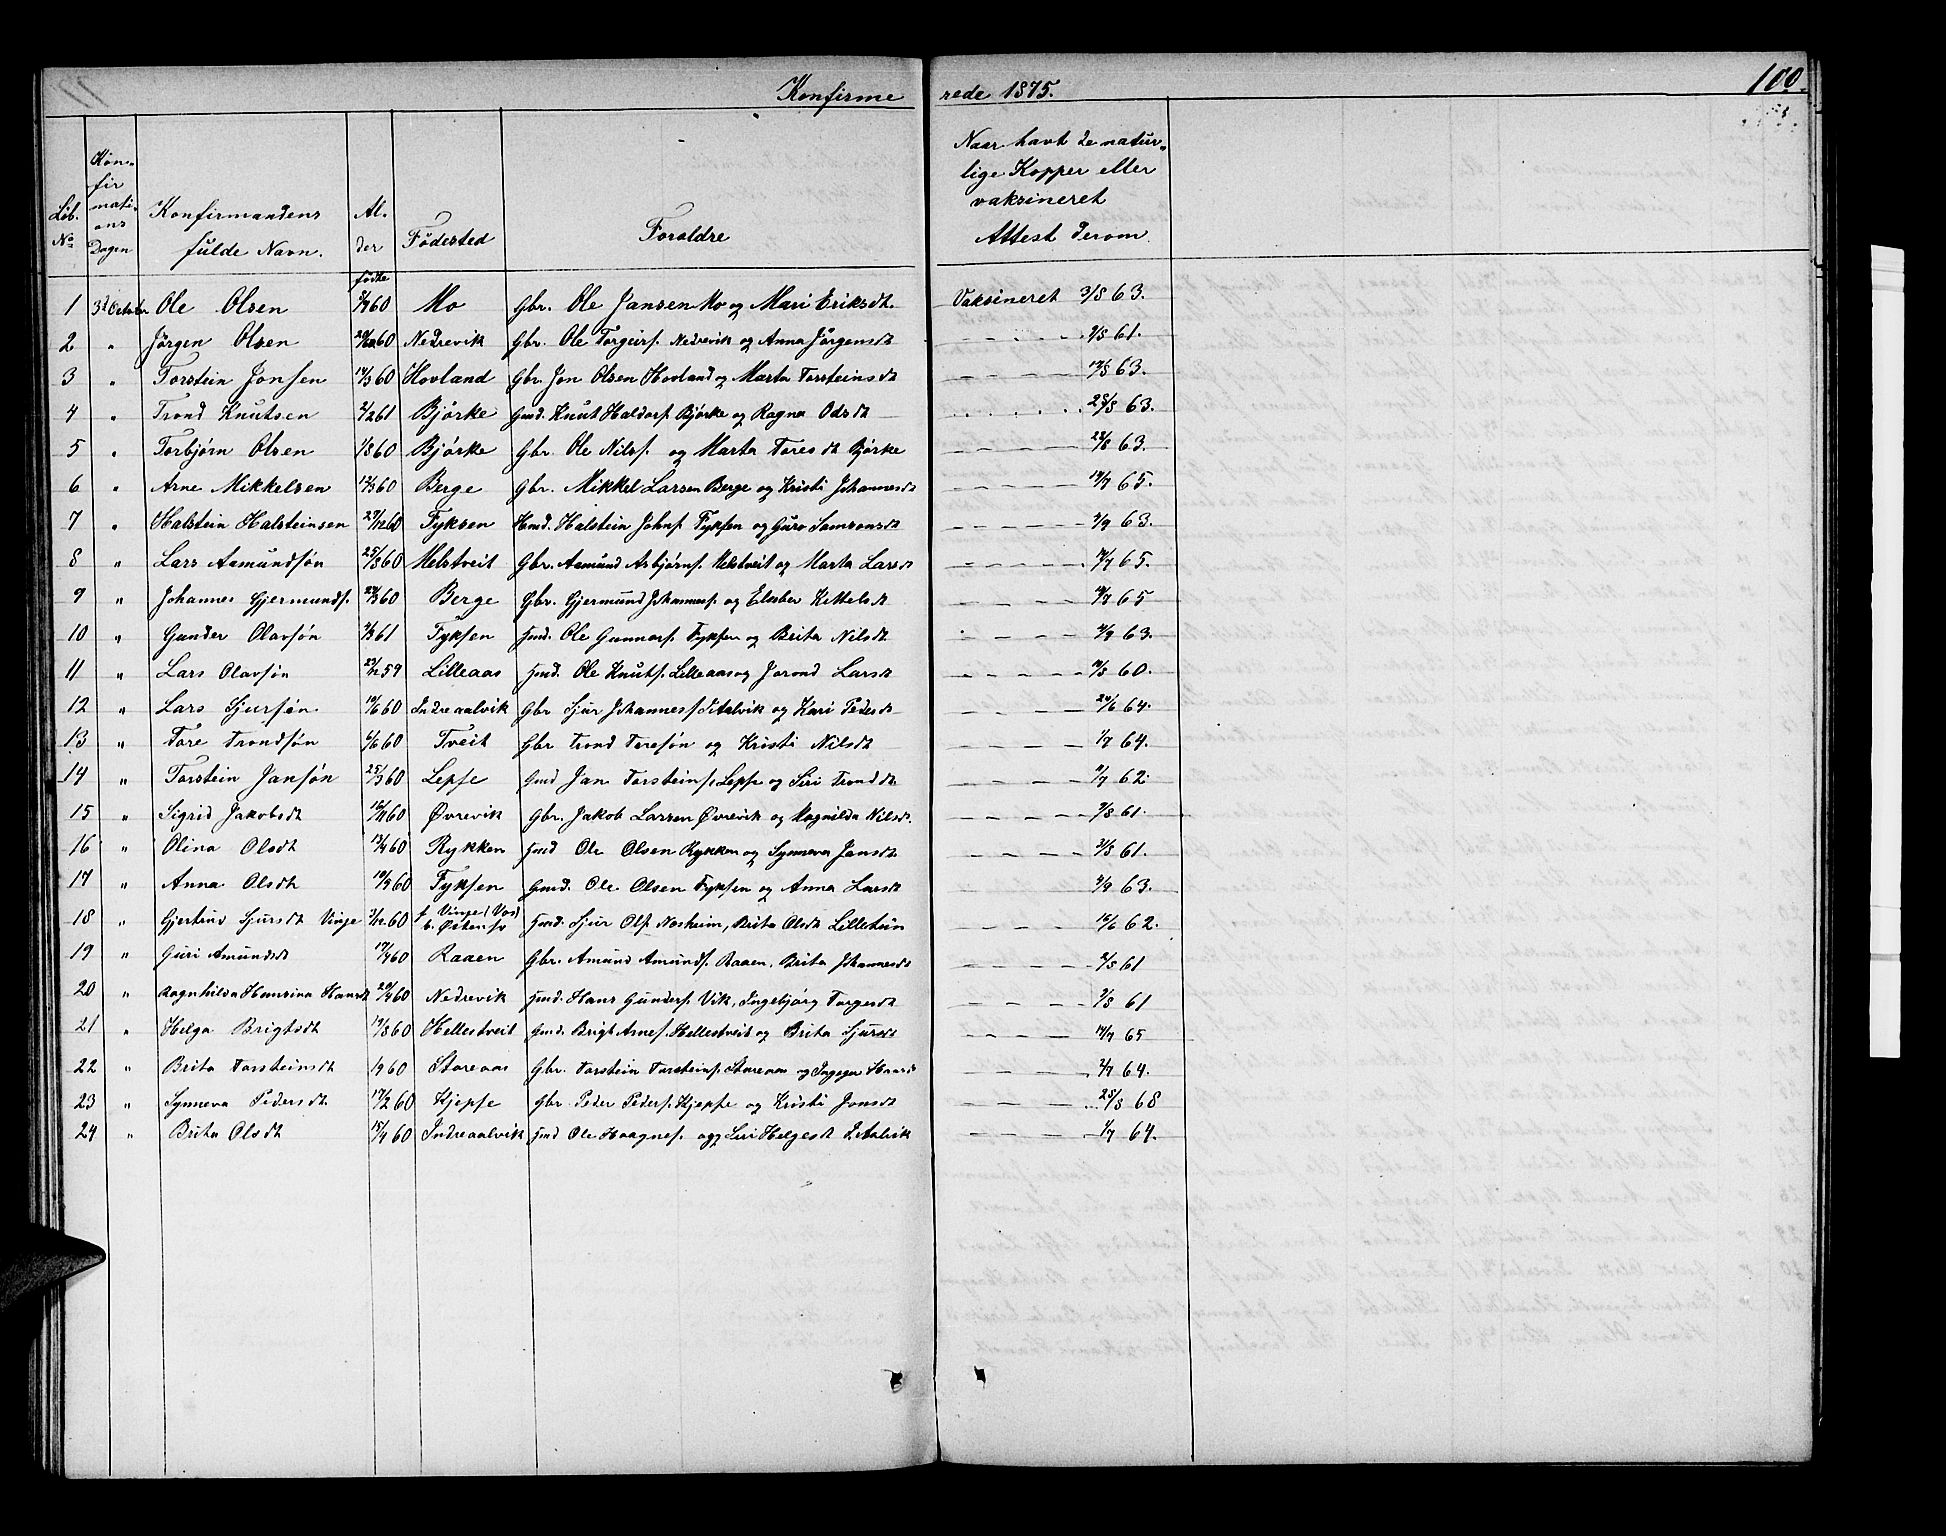 Konfirmerede 1875. 100.
Löb. No Konfirmations Dagen Konfirmandens fulde Navn. Alder Födested Foraldre Naar havt de naturlige Kopper eller vaksineret Attest derom.
födte
1 3d Octobr Ole Olsen 60 Mo Gbr. Ole Jansen Mo og Mari Eriksdt. Vaksineret 3/8 63.
2 " Jörgen Olsen 60 Nedrevik Gbr. Ole Torgeirs. Nedrevik og Anna Jörgensdt 61.
3 " Torstein Jonsen 14/3 60 Hovland Gbr. Jon Olsen Hovland og Marta Torsteinsdt 63.
4 " Trond Knutsen 2/2 61 Bjørke Gmd. Knut Haldors. Bjørke og Ragna Odsdt 63.
5 " Torbjørn Olsen 1/8 60 Bjørke Gbr. Ole Nils. og Marta Toresdt Bjørke 63.
6 " Arne Mikkelsen 12/3 60 Berge Gbr. Mikkel Larsen Berge og Kristi Johannesdt 65.
7 " Halstein Halsteinsen 27/12 60 Fyksen Hmd. Halstein Johns. Fyksen og Guro Samsonsdt 63.
8 " Lars Aamundsøn 25/3 60 Melstveit Gbr. Aamund Asbjørns. Melstveit og Marta Larsdt 65.
9 " Johannes Gjermunds. 60 Berge Gbr. Gjermund Johanness. og Elsber Kittelsdt 65
10 " Gunder Olavsøn 61 Fyksen Hmd. Ole Gunners. Fyksen og Brita Nilsdt 63.
11 " Lars Olavsøn 59 Lilleaas Hmd. Ole Knuts. Lilleaas og Jorond Larsdt 60.
12 " Lars Sjursøn. 10/6 60 Indreaalvik Gbr Sjur Johanness. I Aalvik og Kari Pedersdt 64.
13 " Tore Trondsøn 6/6 60 Tveit Gbr Trond Toresøn og Kristi Nilsdt 1/7 64.
14 " Torstein Jansøn 25/3 60 Lepse Gmd Jan Torsteins. Lepse og Siri Trondsdt 62.
15 " Sigrid Jakobsdt 60 Øvrevik Gbr. Jakob Larsen Øvrevik og Magnilda Nilsdt. 61.
16 " Olina Olsdt 13/4 60 Rykken Hmd Ole Olsen Rykken og Synneva Jansdt 61.
17 " Anna Olsdt 10/9 60 Fyksen Gmd. Ole Olsen Fyksen og Anna Larsdt 63.
18 " Gjertrud Sjursdt Vinge 3/12 60 f. Vinge (Vos) b. Østensø Hmd. Sjur Ols. Nesheim, Brita Olsdt Lilletun 62.
19 " Guri Amundsdt 60 Raaen Gbr. Amund Amunds. Raaen. Brita Johannesdt 61
20 " Ragnhilda Hansina Hansdt 60 Nedrevik Hmd. Hans Gunders. Vik, Ingebjørg Torgersdt 61
21 " Helga Brigtsdt 19/8 60 Hellestveit Gmd. Brigt Arnes. Hellestveit og Brita Sjursdt 65
22 " Brita Torsteinsdt 60 Storeaas Gbr. Torstein Torsteins. Storeaas og Ingeger 64.
23 " Synneva Pedersdt 17/2 60 Kjepse Gbr Peder Peders. Kjepse og Kristi Jonsdt 68
24 " Brita Olsdt 60 Indreaalvik Hmd Ole Haagnes. og Siri Helgesdt I Aalvik 1/7 64.